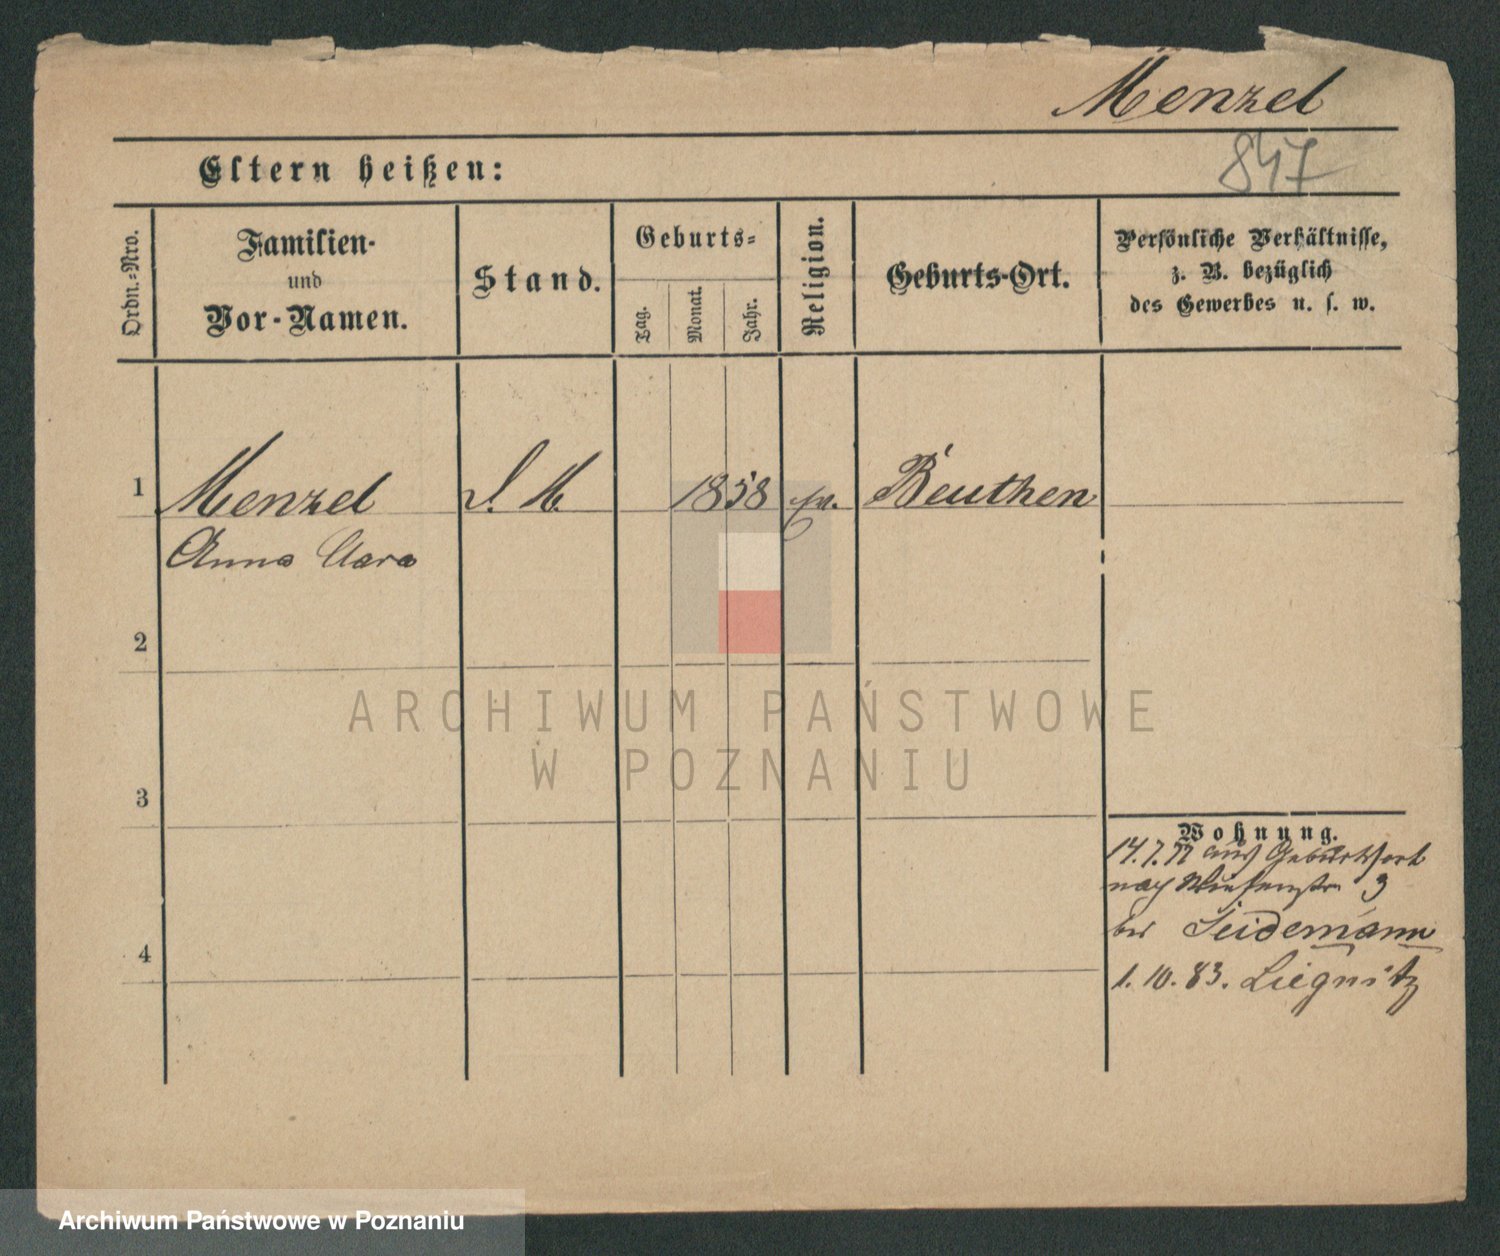 Menzel
847
Eltern heißen:
Ordn.-Nro.
Familien-
und
Vor-Namen.
Stand.
Geburts-
Tag.
Monat.
Jahr.
Religion.
Geburts-Ort.
Persönliche Verhältnisse,
z. B. bezüglich
des Gewerbes u. s. w.
1
Menzel
D. M.
1858
ev.
Beuthen
Anna Clara
2
ARCHIWUM PAŃSTWOWE
W POZNANIU
3
Wohnung.
14.7.77 aus Geburtsort
nach 3
bei Seidemann
4
1.10.83. Liegnitz
Archiwum Państwowe w Poznaniu